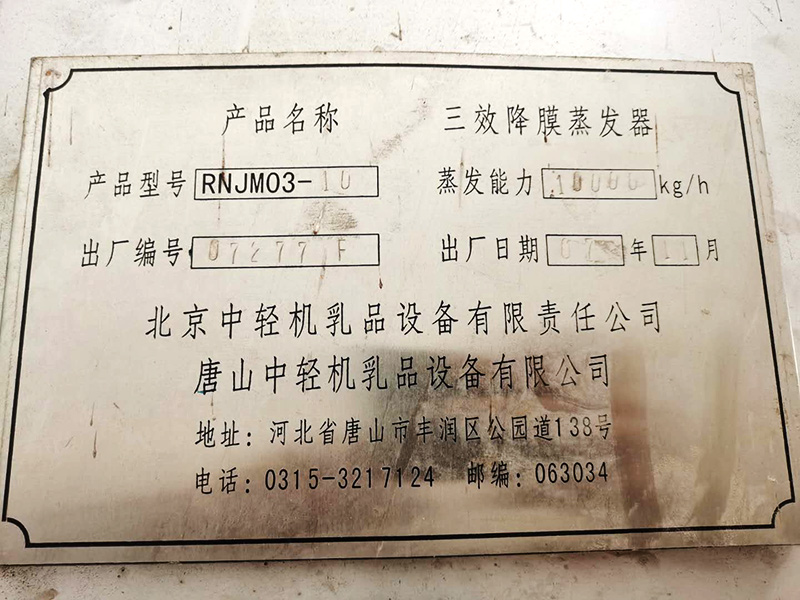 产品名称 三效降膜蒸发器
产品型号 RNJM03-10 蒸发能力 10000 kg/h
出厂编号 07277 F 出厂日期 07 年 11 月
北京中轻机乳品设备有限责任公司
唐山中轻机乳品设备有限公司
地址: 河北省唐山市丰润区公园道138号
电话: 0315-3217124 邮编: 063034